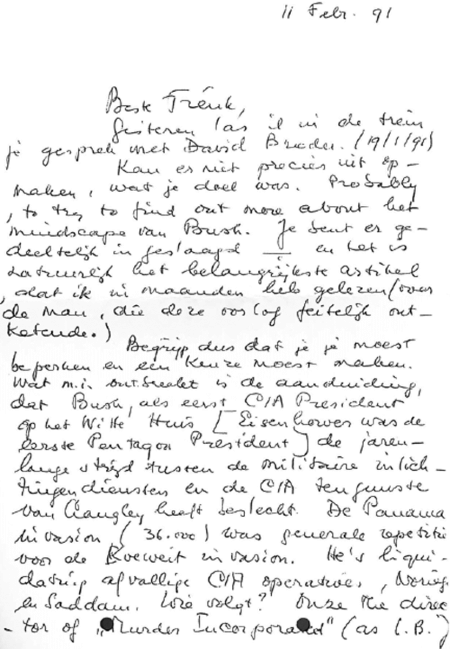 11 Febr. 91
Beste Frénk,
Gisteren las ik in de trein
je gesprek met David Broder. (19/1/91)
Kan er niet precies uit op-
maken, wat je doel was. Probably
, to try to find out more about het
mindscape van Bush. Je bent er ge-
deeltelijk in geslaagd — en het is
natuurlijk het belangrijkste artikel
, dat ik in maanden heb gelezen (over
de man, die deze oorlog feitelijk ont-
ketende.)
Begrijp dus dat je je moest
beperken en een keuze moest maken.
Wat m.i. ontbreekt is de aanduiding,
dat Bush, als eerst CIA President
op het Witte Huis [Eisenhower was de
eerste Pentagon President] de jaren-
lange strijd tussen de militaire inlich-
tingendiensten en de CIA ten gunste
van Langley heeft beslecht. De Panama
invasion (36.000) was generale repetitie
voor de Koeweit invasion. He's liqui-
dating afvallige CIA operatives,
en Saddam. Wie volgt? Onze direc
-tor of „Murder Incorporated" (as L.B.J